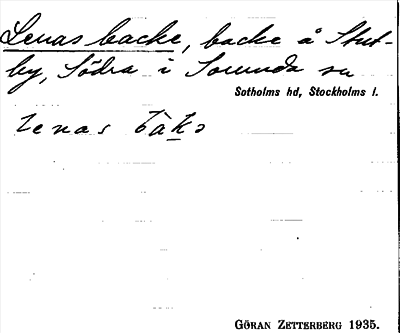 Lenas backe, backe å Stut-
by, Södra i Sorunda sn
Sotholms hd, Stockholms l.
lenas bàkə
GÖRAN ZETTERBERG 1935.